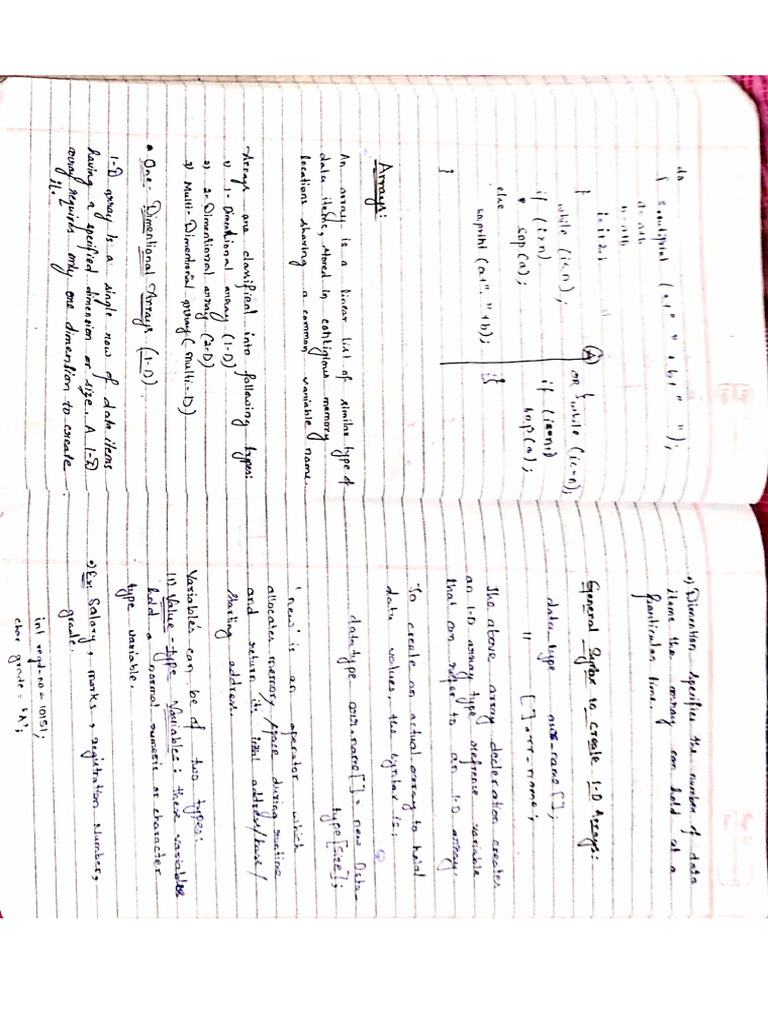 do
{ sout.print (a+" " + b+ " ");
a = a+b;
b = a+b;
i = i+2;
}
while (i<n);
if (i>n)
sop(a);
else
so.println (a+" "+b);
}
(A)
OR { }while (i<=n);
if (i==n+1)
sop(a);
}
Arrays:
An array is a linear list of similar type of
data items, stored in contigious memory
locations sharing a common variable name.
Arrays are classified into following types:
1) 1-Dimentional array (1-D)
2) 2-Dimentional array (2-D)
3) Multi-Dimentional array (multi-D)
• One-Dimentional Arrays (1-D)
1-D array is a single row of data items
having a specified dimention or size. A 1-D
array requires only one dimention to create
it.
Dimention specifies the number of data
items the array can hold at a
particular time.
General Syntax to create 1-D Arrays:
data_type arr-name[];
" [] arr-name;
The above array decleration creates
an 1-D array type reference variable
that can refer to an 1-D array.
To create an actual array to hold
data values, the syntax is:
datatype arr-name[] = new Data-
type[size];
'new' is an operator which
allocates memory space during runtime
and return its initial address/base/
starting address.
Variables can be of two types:
(1) Value-type Variables: these variables
hold a normal numeric or character
type variable.
Ex: Salary, marks, registration Number,
grade.
int regd-no = 10151;
char grade = 'A';